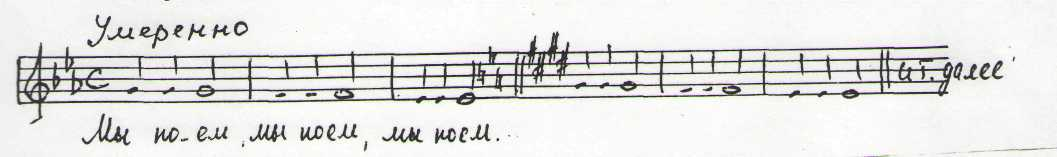 Умеренно
и т. далее
Мы по-ем, мы поем, мы поем...